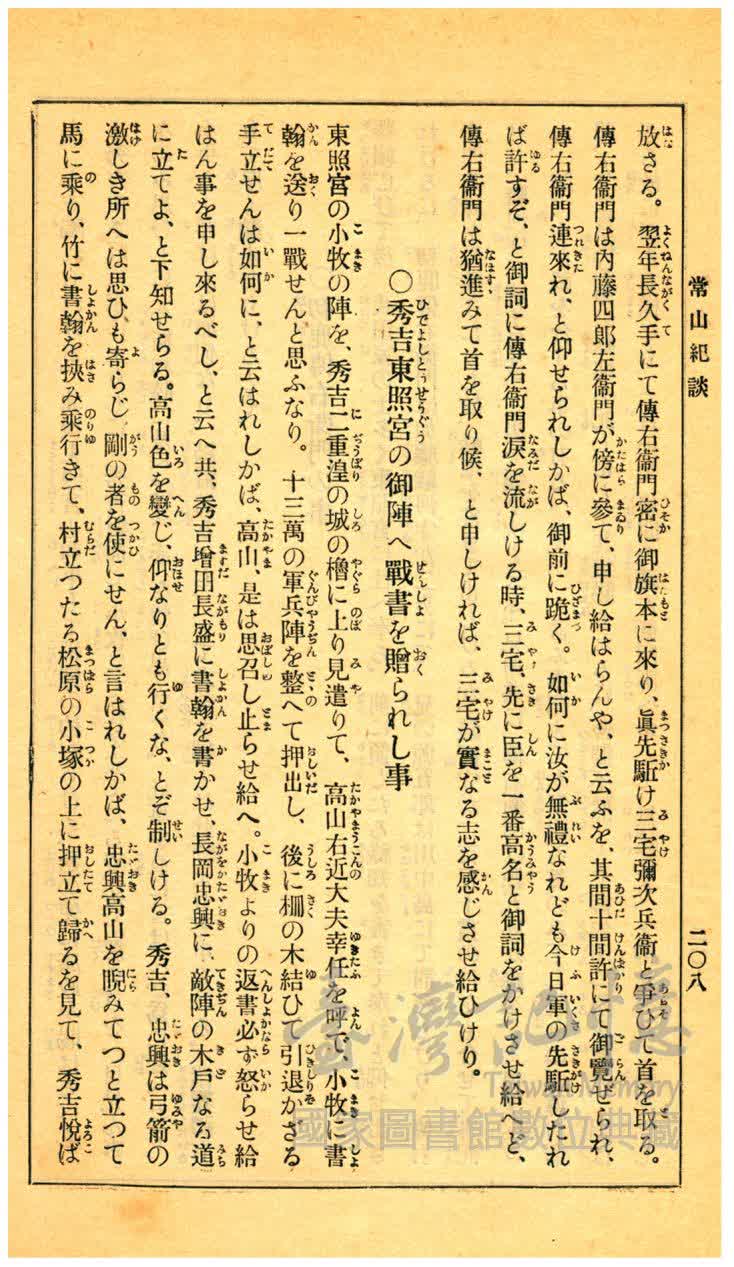 常山紀談
二〇八
放さる。翌年長久手にて傳右衞門密に御旗本に來り、眞先駈け三宅彌次兵衞と爭ひて首を取る。
傳右衞門は內藤四郎左衞門が傍に參て、申し給はらんや、と云ふを、其間十間許にて御覽ぜられ、
傳右衞門連來れ、と仰せられしかば、御前に跪く。如何に汝が無禮なれども今日軍の先駈したれ
ば許すぞ、と御詞に傳右衞門淚を流しける時、三宅、先に臣を一番高名と御詞をかけさせ給へど、
傳右衞門は猶進みて首を取り候、と申しければ、三宅が實なる志を感じさせ給ひけり。
〇秀吉東照宮の御陣へ戰書を贈られし事
東照宮の小牧の陣を、秀吉二重湟の城の櫓に上り見遣りて、高山右近大夫幸任を呼で、小牧に書
翰を送り一戰せんと思ふなり。十三萬の軍兵陣を整へて押出し、後に柵の木結ひて引退かざる
手立せんは如何に、と云はれしかば、高山、是は思召し止らせ給へ。小牧よりの返書必ず怒らせ給
はん事を申し來るべし、と云へ共、秀吉增田長盛に書翰を書かせ、長岡忠興に、敵陣の木戶なる道
に立てよ、と下知せらる。高山色を變じ、仰なりとも行くな、とぞ制しける。秀吉、忠興は弓箭の
激しき所へは思ひも寄らじ、剛の者を使にせん、と言はれしかば、忠興高山を睨みてつと立つて
馬に乘り、竹に書翰を挾み乘行きて、村立つたる松原の小塚の上に押立て歸るを見て、秀吉悅ば
臺灣記憶
Taiwan Memory
國家圖書館數位典藏